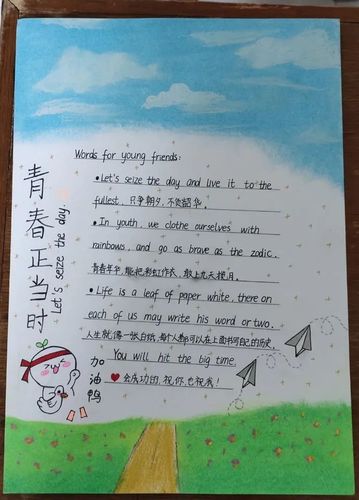 青春正当时
Let's seize the day.
Words for young friends:
•Let's seize the day and live it to the
fullest. 只争朝夕,不负韶华。
•In youth, we clothe ourselves with
rainbows, and go as brave as the zodic.
青春年华,能把彩虹作衣,敢上九天揽月。
•Life is a leaf of paper white, there on
each of us may write his word or two.
人生就像一张白纸,每个人都可以在上面书写自己的历史。
You will hit the big time.
会成功的,祝你也祝我!
加油鸭